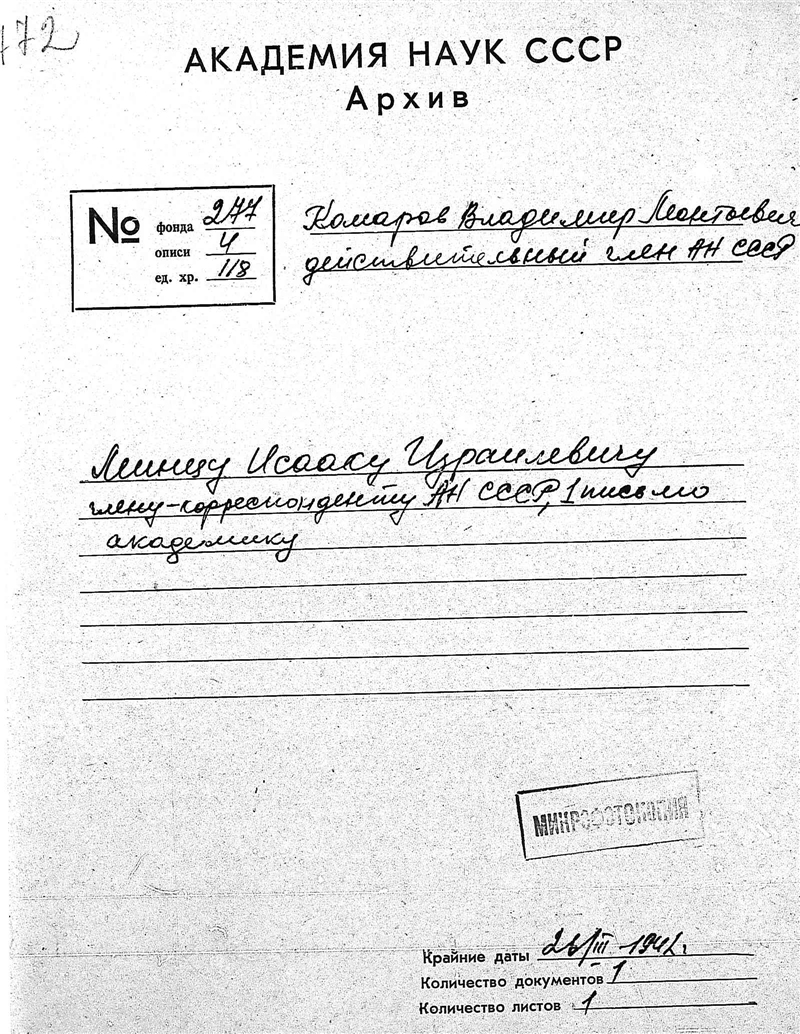 172
АКАДЕМИЯ НАУК СССР
Архив
№
фонда 277
описи 4
ед. хр. 118
Комаров Владимир Леонтьевич
действительный член АН СССР
Минцу Исааку Израилевичу
члену-корреспонденту АН СССР, 1 письмо
академику
МИКРОФОТОКОПИЯ
Крайние даты 26/III 1942 г.
Количество документов 1
Количество листов 1